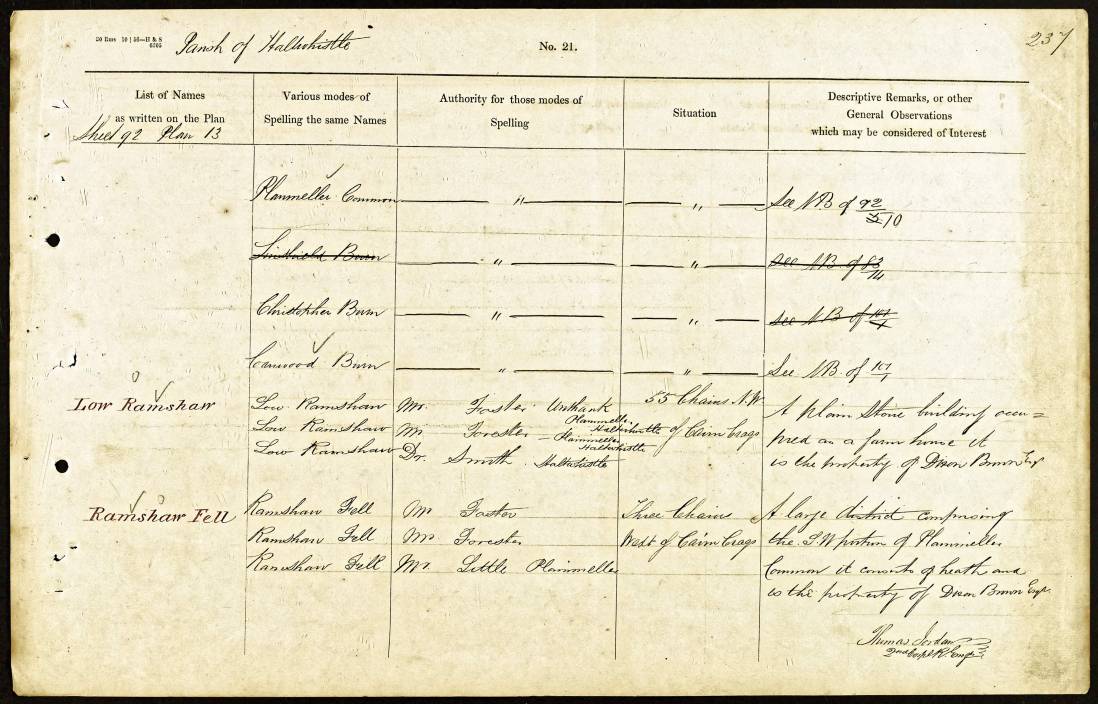 20 Rms 10 | 56—H & S
6305
Parish of Haltwhistle
No. 21.
237
List of Names
as written on the Plan
Various modes of
Spelling the same Names
Authority for those modes of
Spelling
Situation
Descriptive Remarks, or other
General Observations
which may be considered of Interest
Sheet 92 Plan 13
Planmeller Common — " — — " — See NB of 92/10
Linshield Burn — " — — " — See NB of 83/14
Christopher Burn — " — — " — See NB of
Coanwood Burn — " — — " — See NB. of 101/1
Low Ramshaw
Low Ramshaw Mr. Foster Unthank 55 Chains N.W.
Low Ramshaw Mr Forester Plainmeller Haltwhistle of Cairn Crags
Low Ramshaw Dr. Smith Haltwhistle
A plain Stone building occu=
pied as a farm house it
is the property of Dixon Brown Esqr
Ramshaw Fell
Ramshaw Fell Mr Foster Three Chains
Ramshaw Fell Mr Forester West of Cairn Crags
Ramshaw Fell Mr. Little Plainmeller
A large district comprising
the S.W portion of Plainmeller
Common it consists of heath and
is the property of Dixon Brown Esqr.
Thomas Jordan
2nd Corpl R. Engrs